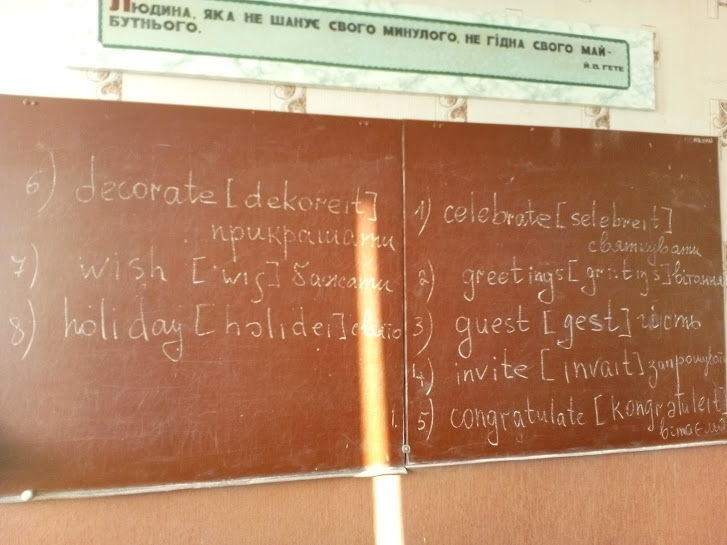 ЛЮДИНА, ЯКА НЕ ШАНУЄ СВОГО МИНУЛОГО, НЕ ГІДНА СВОГО МАЙ-
БУТНЬОГО.
Й.В. ГЕТЕ
6) decorate [dekoreit]
прикрашати
7) wish ['wiʃ] бажати
8) holiday [holidei] свято
1) celebrate [selebreit]
святкувати
2) greetings [gri:tiŋs] вітання
3) guest [gest] гість
4) invite [invait] запрошува
5) congratulate [kongratuleit
вітаємо